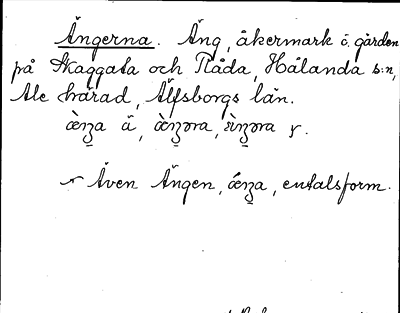 Ängerna. Äng, åkermark ö. gården
på Skaggata och Råda, Hålanda s:n,
Ale härad, Älfsborgs län.
Även Ängen, entalsform.